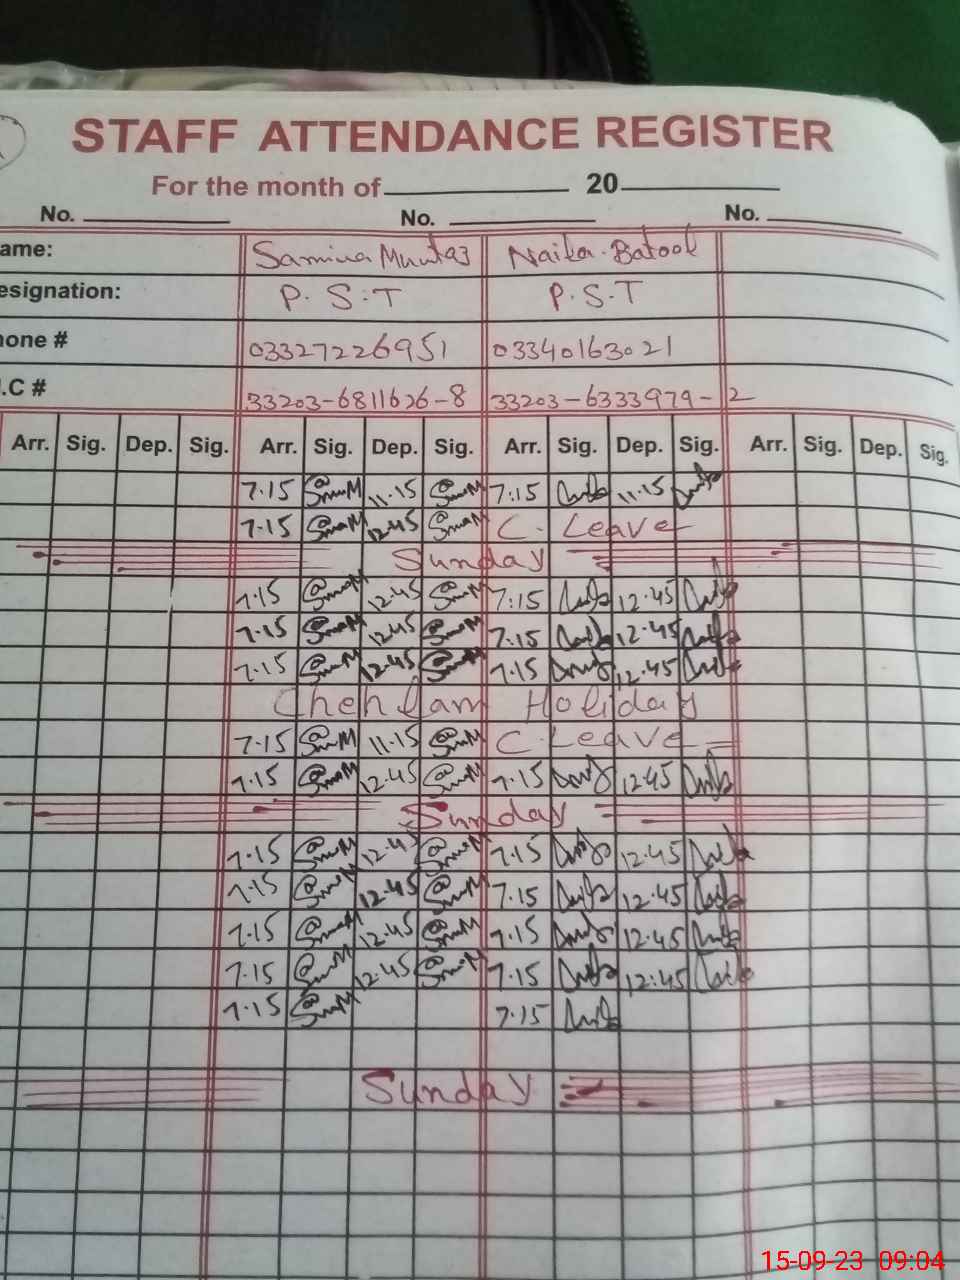 STAFF ATTENDANCE REGISTER
For the month of 20
No. No. No.
ame: Samina Mumtaz Naila Batool
esignation: P.S.T P.S.T
hone # 03327226951 03340163021
.C # 33203-6811626-8 33203-6333979-2
Arr. Sig. Dep. Sig. Arr. Sig. Dep. Sig. Arr. Sig. Dep. Sig. Arr. Sig. Dep. Sig.
7.15 11.15 7:15 11.15
7.15 12.45 C. Leave
Sunday
7.15 12.45 7:15 12.45
7.15 12.45 7.15 12.45
7.15 12.45 7.15 12.45
Chehlam Holiday
7.15 11.15 C. Leave
7.15 12.45 7.15 12.45
Sunday
7.15 12.45 7.15 12.45
7.15 12.45 7.15 12.45
7.15 12.45 7.15 12.45
7.15 12.45 7.15 12:45
7.15 7.15
Sunday
15-09-23 09:04